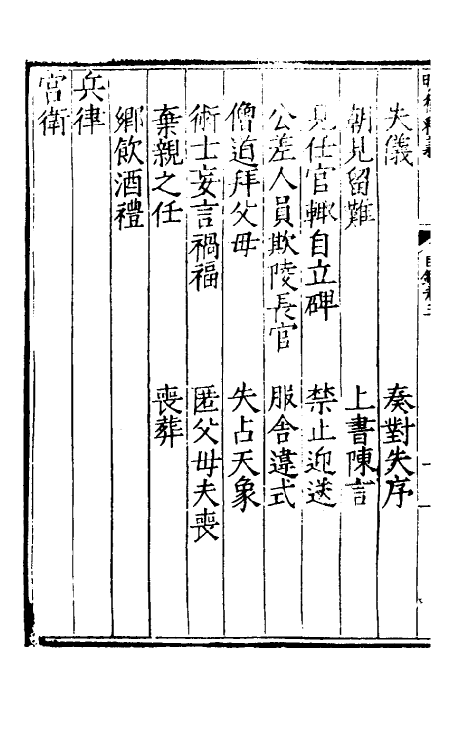 失儀　奏對失序
朝見留難　上書陳言
見任官輒自立碑　禁止迎送
公差人員欺陵長官　服舍違式
僧道拜父母　失占天象
術士妄言禍福　匿父母夫喪
棄親之任　喪葬
鄉飲酒禮
兵律
宮衛